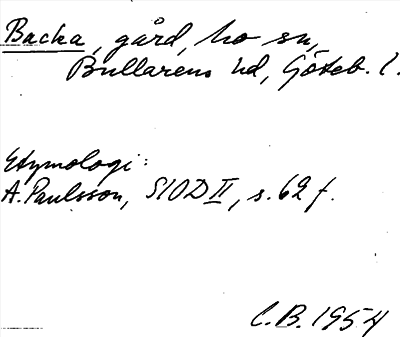 Backa, gård, Mo sn,
Bullarens hd, Göteb. l.
Etymologi:
A. Paulsson, SIOD II, s. 62 f.
C.B. 1954